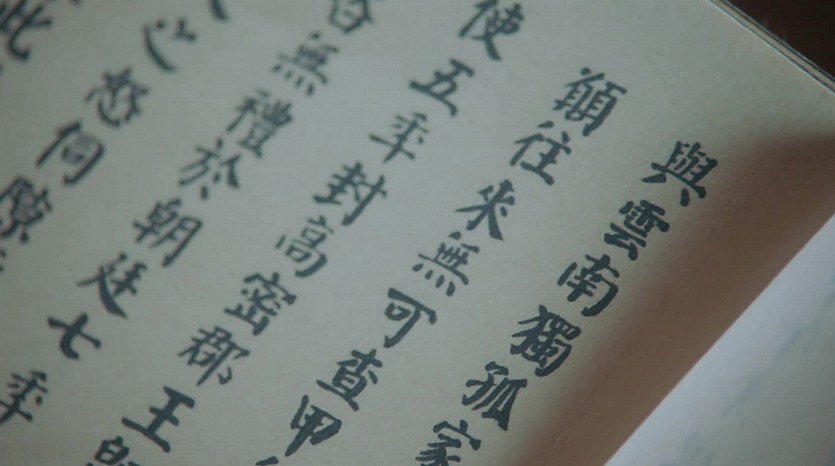 與雲南獨孤家
顓往來無可查甲
使五年封高密郡王
無禮於朝廷七年
之怒伺隙
此